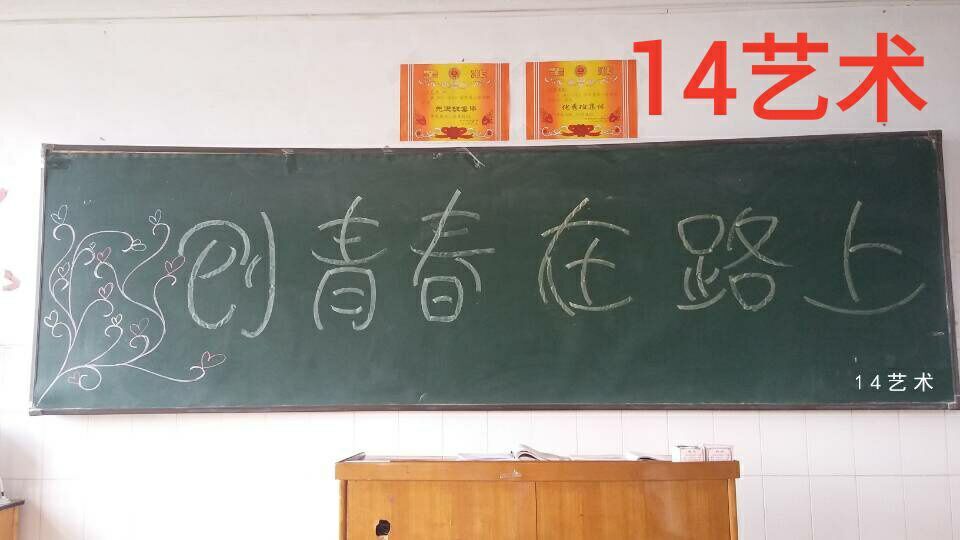 14艺术
先进班集体
优秀班集体
创青春在路上
14艺术